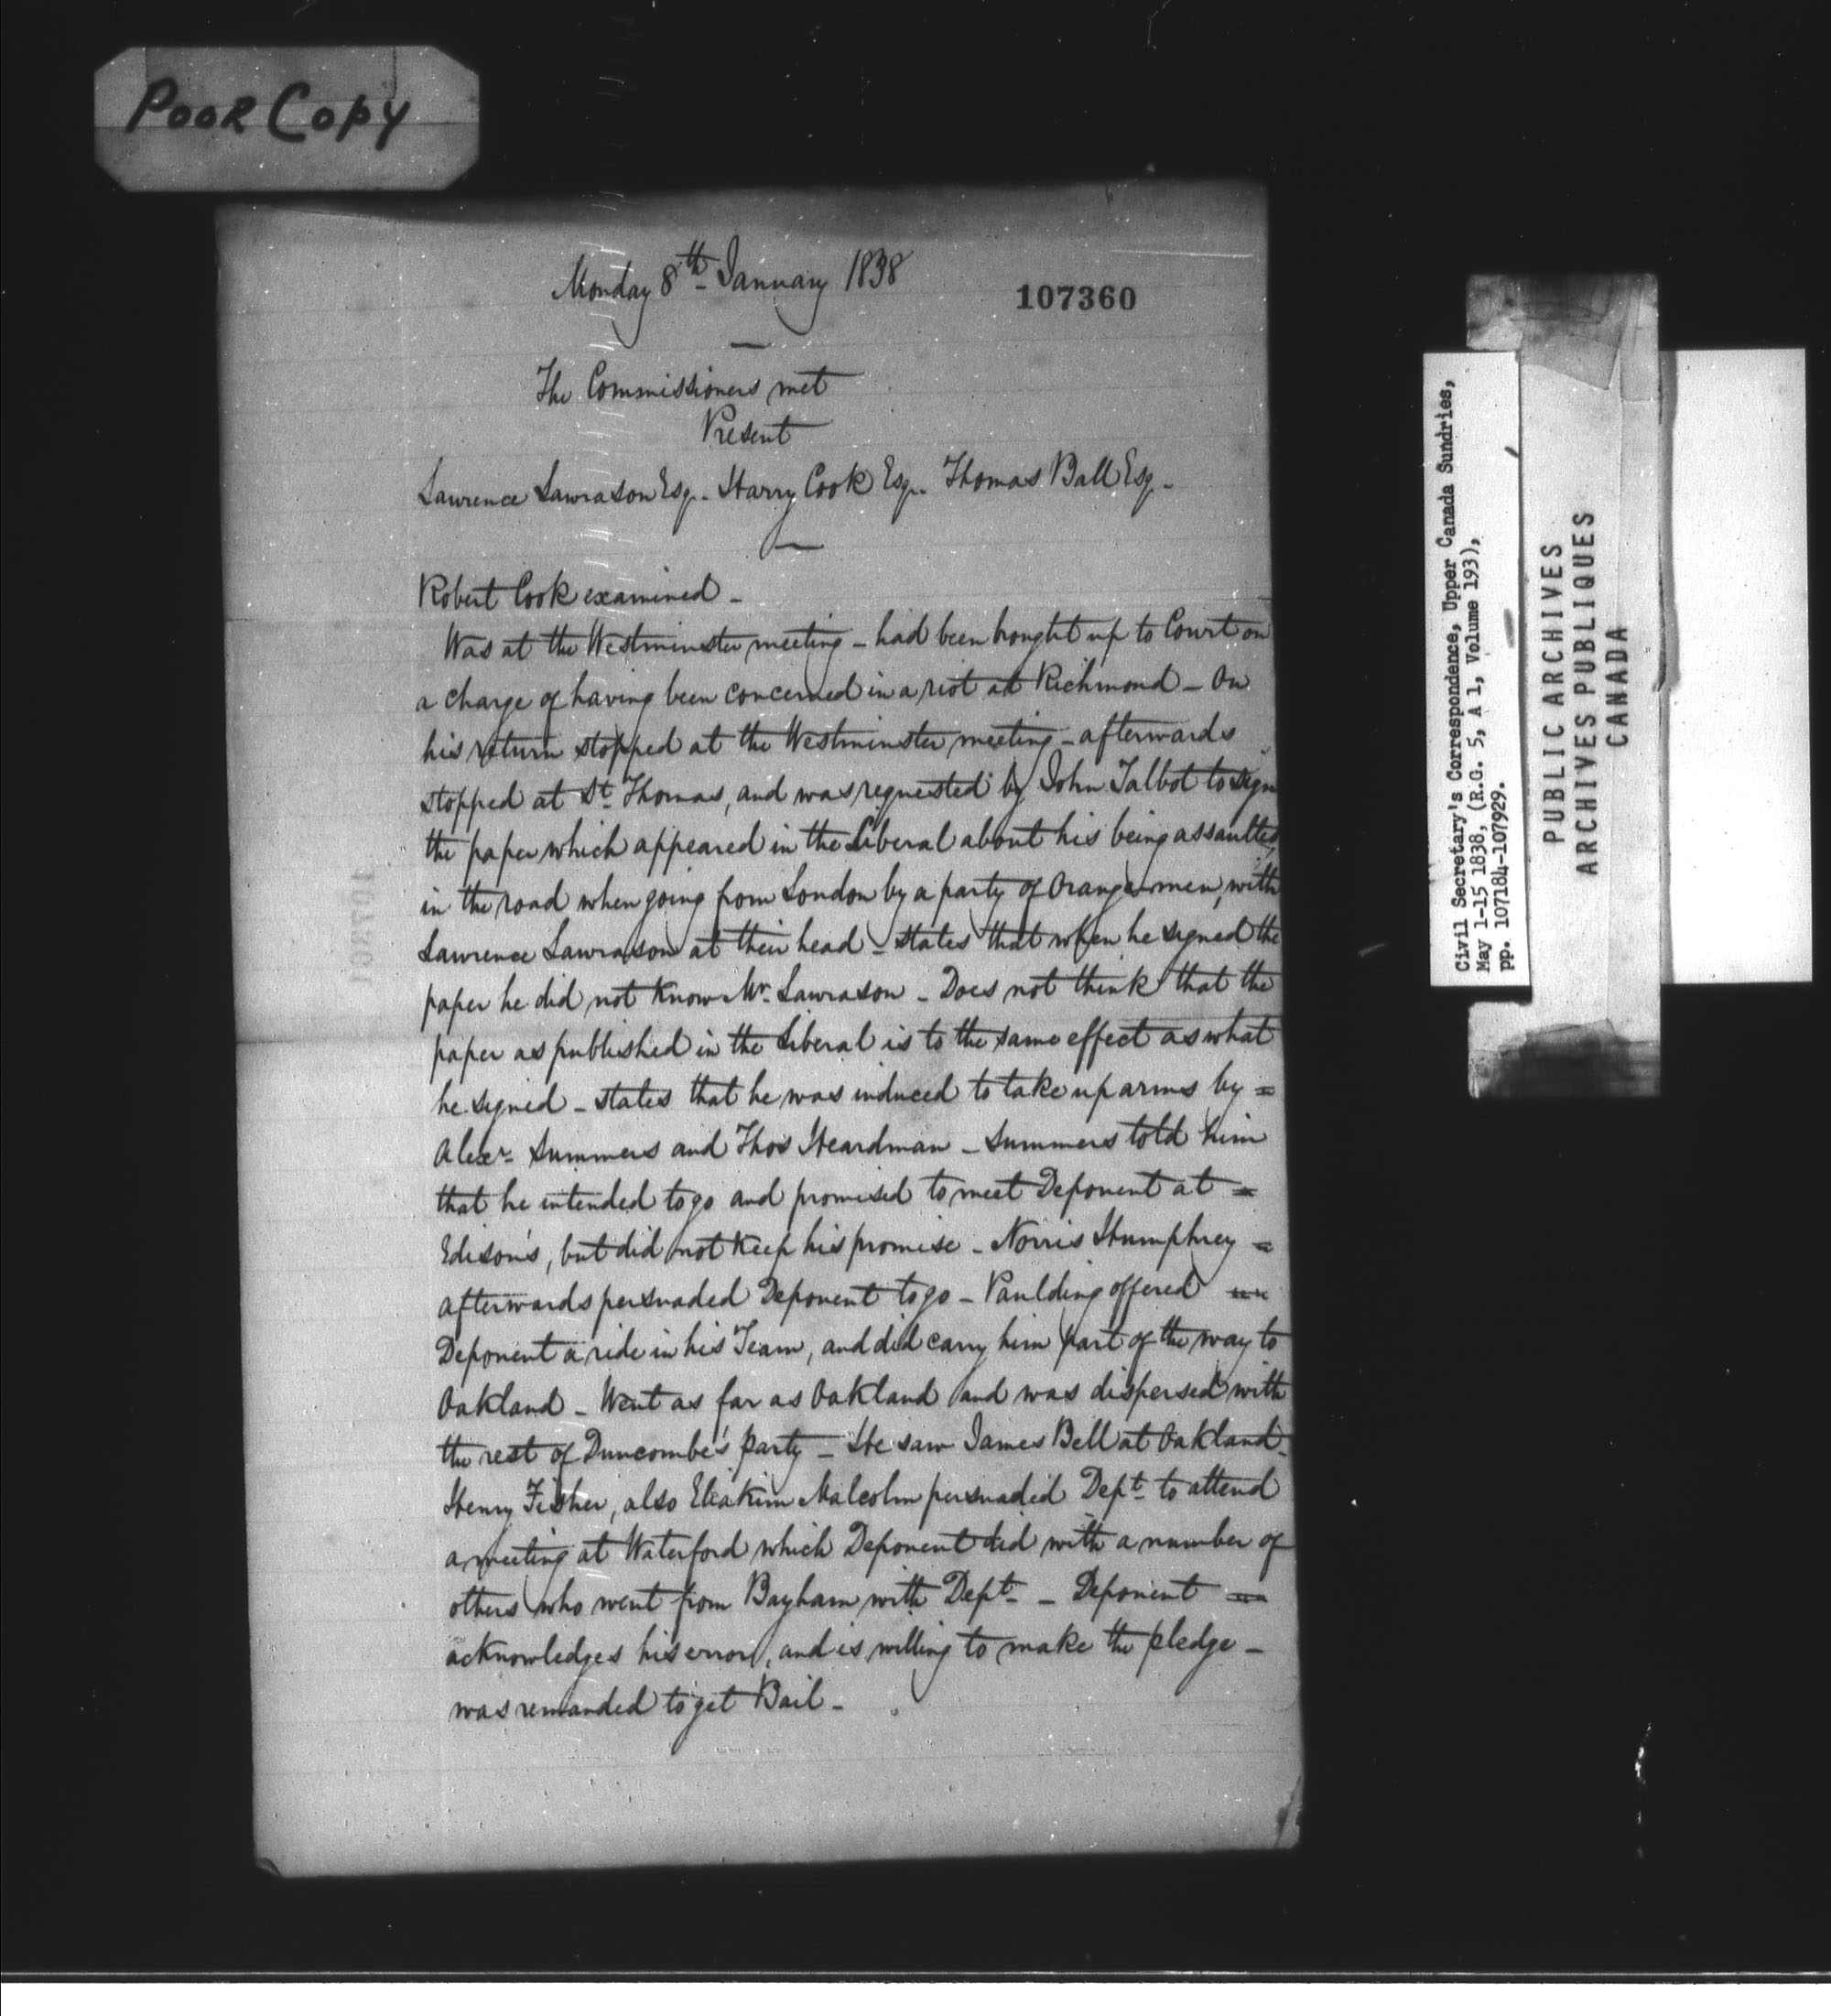 Poor Copy
Monday 8th January 1838
107360
The Commissioners met
Present
Lawrence Lawrason Esq. Harry Cook Esq. Thomas Ball Esq.
Robert Cook examined -
Was at the Westminster meeting - had been brought up to Court on
a charge of having been concerned in a riot at Richmond - On
his return stopped at the Westminster meeting - afterwards
stopped at St. Thomas, and was requested by John Talbot to sign
the paper which appeared in the Liberal about his being assaulted
in the road when going from London by a party of Orangemen, with
Lawrence Lawrason at their head - states that when he signed the
paper he did not know Mr. Lawrason - Does not think that the
paper as published in the Liberal is to the same effect as what
he signed - states that he was induced to take up arms by =
Alexr. Summers and Thos Heardman - Summers told him
that he intended to go and promised to meet Deponent at =
Edison's, but did not keep his promise - Norris Humphrey =
afterwards persuaded Deponent to go - Paulding offered
Deponent a ride in his Team, and did carry him part of the way to
Oakland - Went as far as Oakland and was dispersed with
the rest of Duncombe's party - He saw James Bell at Oakland -
Henry Fisher, also Eliakim Malcolm persuaded Dept. to attend
a meeting at Waterford which Deponent did with a number of
others who went from Bayham with Dept. - Deponent
acknowledges his error, and is willing to make the pledge -
was remanded to get Bail -
Civil Secretary's Correspondence, Upper Canada Sundries,
May 1-15 1838, (R.G. 5, A 1, Volume 193),
pp. 107184-107929.
PUBLIC ARCHIVES
ARCHIVES PUBLIQUES
CANADA